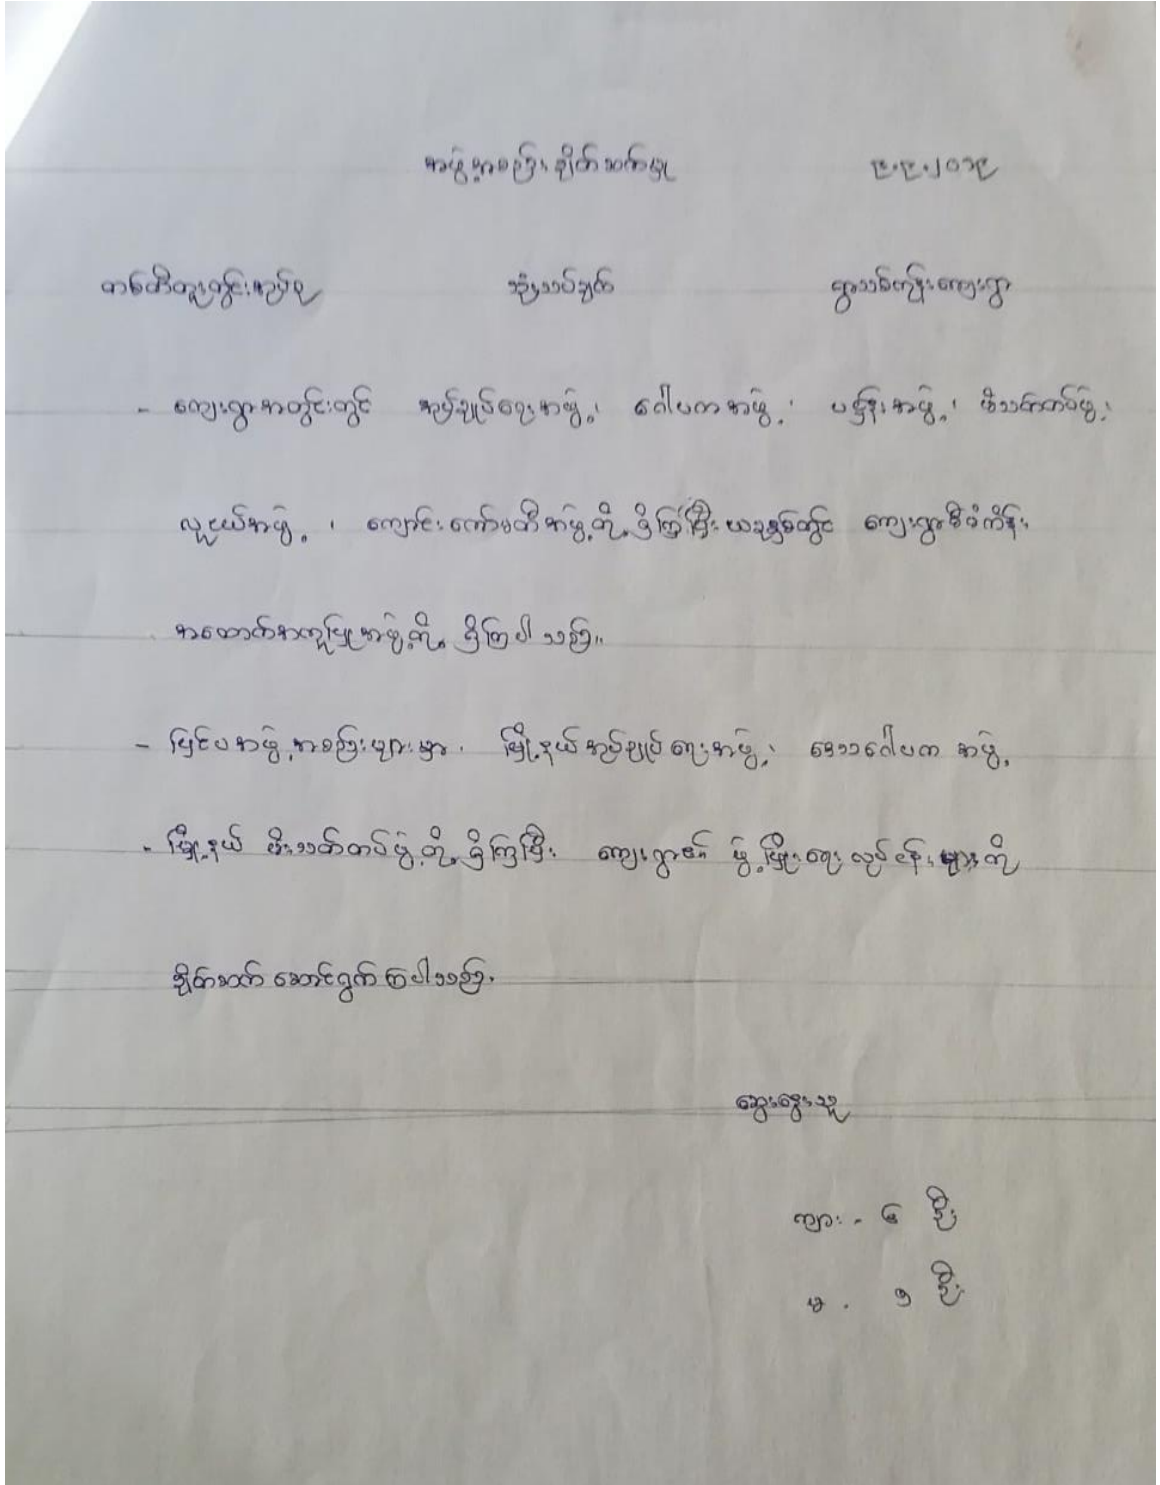 အဖွဲ့အစည်းချိတ်ဆက်မှု ၉.၉.၂၀၁၉
တစ်တီတူးတွင်းအုပ်စု သုံးသပ်ချက် ရွာသစ်ကုန်းကျေးရွာ
- ကျေးရွာအတွင်းတွင် အုပ်ချုပ်ရေးအဖွဲ့၊ ဂေါပကအဖွဲ့၊ ပဌာန်းအဖွဲ့၊ မီးသတ်တပ်ဖွဲ့၊
လူငယ်အဖွဲ့၊ ကျောင်းကော်မတီအဖွဲ့တို့ရှိကြပြီး ယခုနှစ်တွင် ကျေးရွာစီမံကိန်း
အထောက်အကူပြုအဖွဲ့တို့ ရှိကြပါသည်။
- ပြင်ပအဖွဲ့အစည်းများမှာ၊ မြို့နယ်အုပ်ချုပ်ရေးအဖွဲ့၊ ဒေသဂေါပက အဖွဲ့၊
- မြို့နယ် မီးသတ်တပ်ဖွဲ့တို့ ရှိကြပြီး ကျေးရွာ၏ ဖွံ့ဖြိုးရေးလုပ်ငန်းများကို
ချိတ်ဆက်ဆောင်ရွက်ကြပါသည်။
ဆွေးနွေးသူ
ကျား - ၆ ဦး
မ - ၅ ဦး